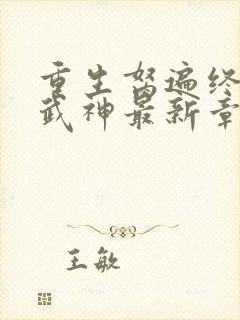 重生努遍终
武神最新章
王敏